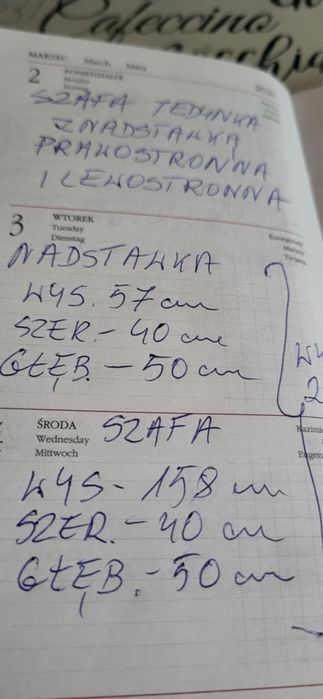 Cafeccino
MARZEC March März
2 PONIEDZIAŁEK
2020
SZAFA JEDYNKA
Z NADSTAWKĄ
PRAWOSTRONNA
I LEWOSTRONNA
3 WTOREK
Tuesday
Dienstag
NADSTAWKA
WYS. 57 cm
SZER. - 40 cm
GŁĘB. - 50 cm
ŚRODA
Wednesday
Mittwoch
SZAFA
WYS - 158 cm
SZER. - 40 cm
GŁĘB. - 50 cm